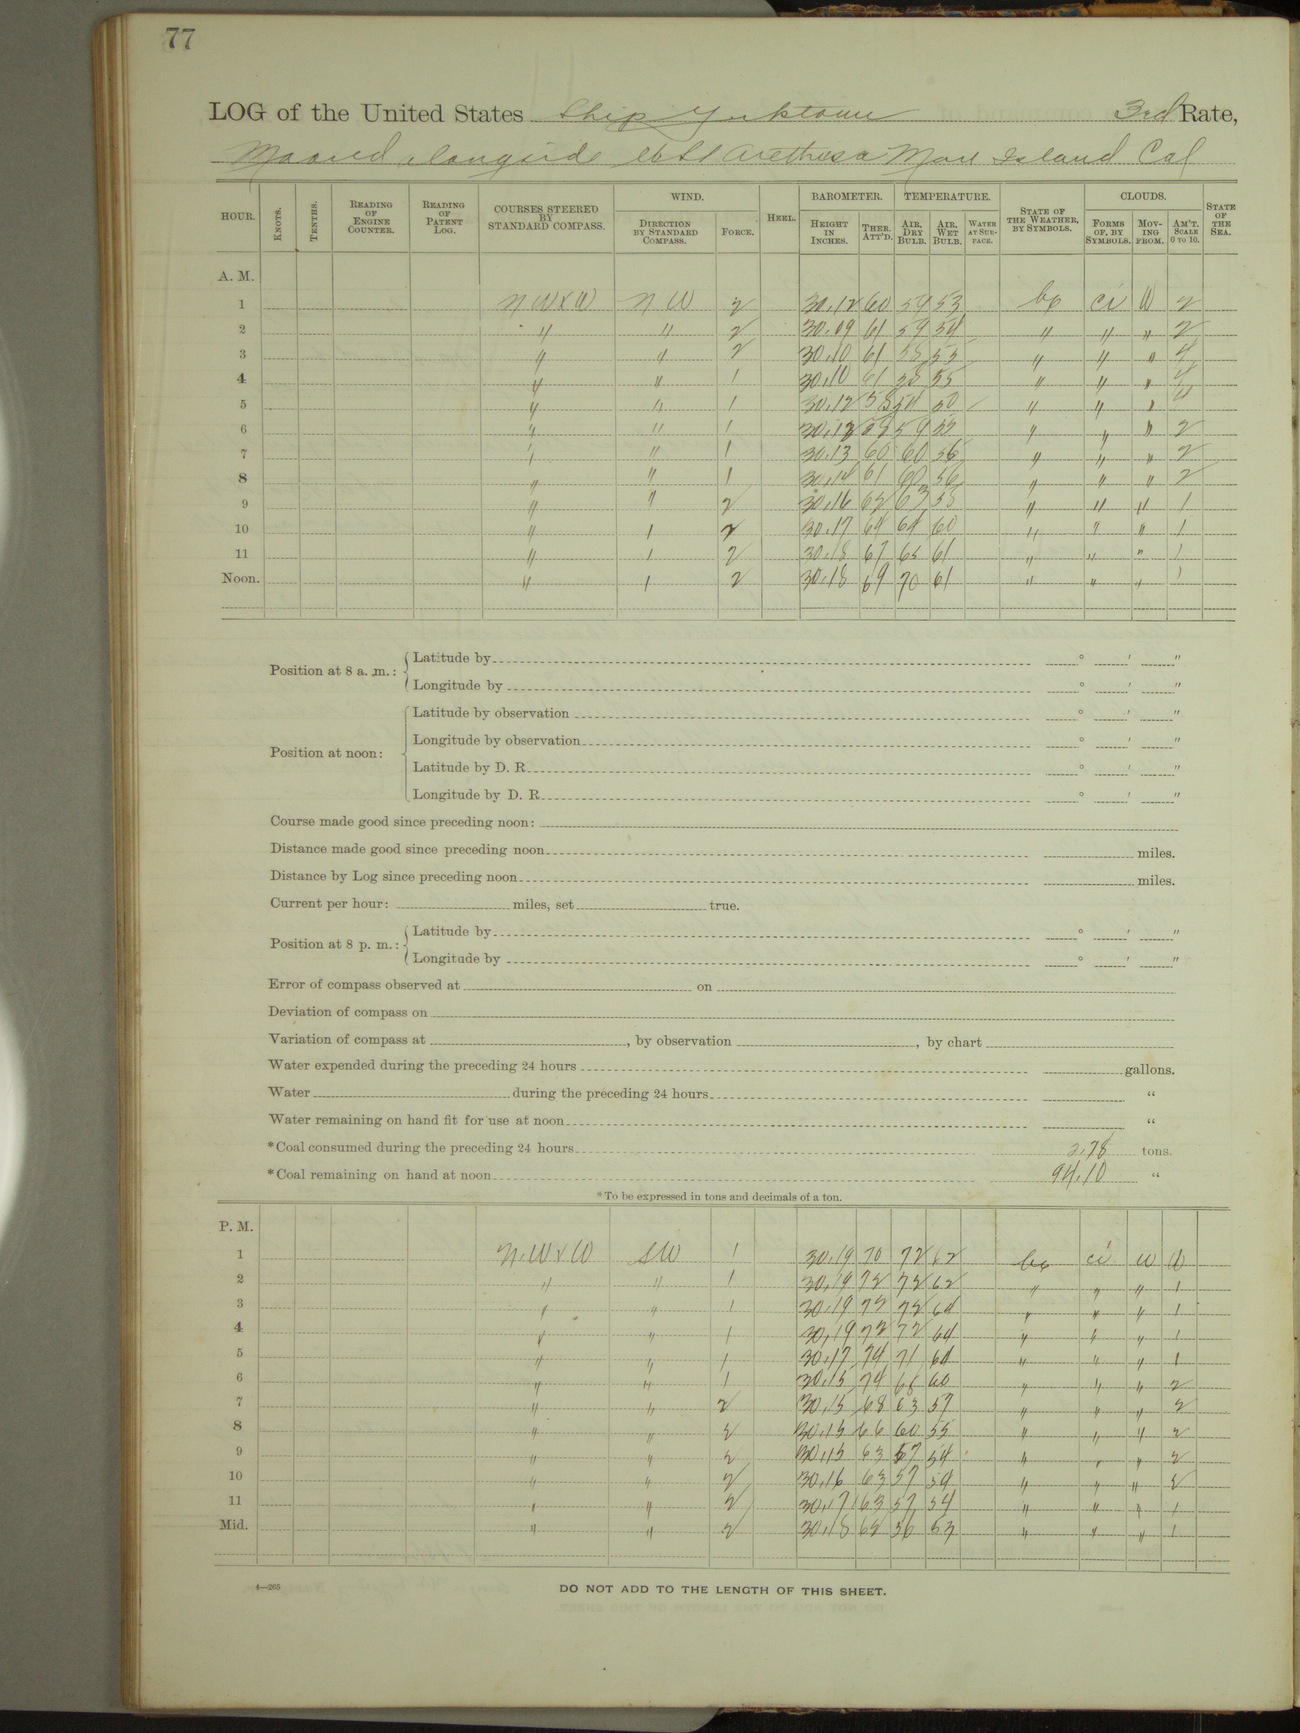 77
LOG of the United States Ship Yorktown 3rd Rate,
Moored alongside USS Arethusa Mare Island Cal
HOUR. KNOTS. TENTHS. READING OF ENGINE COUNTER. READING OF PATENT LOG. COURSES STEERED BY STANDARD COMPASS. WIND. DIRECTION BY STANDARD COMPASS. FORCE. HEEL. BAROMETER. HEIGHT IN INCHES. THER. ATT'D. TEMPERATURE. AIR, DRY BULB. AIR, WET BULB. WATER AT SURFACE. STATE OF THE WEATHER, BY SYMBOLS. CLOUDS. FORMS OF, BY SYMBOLS. MOVING FROM. AM'T. SCALE 0 TO 10. STATE OF THE SEA.
A. M.
1 NWxW NW 2 30.12 60 59 53 bc ci W 2
2 " " 2 30.09 61 59 54 " " " 2
3 " " 2 30.10 61 58 55 " " " 4
4 " " 1 30.10 61 58 55 " " " 4
5 " " 1 30.12 58 54 50 " " " 4
6 " " 1 30.12 59 55 " " " 2
7 " " 1 30.13 60 60 56 " " " 2
8 " " 1 30.14 61 60 56 " " " 2
9 " " 2 30.16 62 63 58 " " " 1
10 " " 2 30.17 64 64 60 " " " 1
11 " " 2 30.18 67 65 61 " " " 1
Noon. " " 2 30.18 69 70 61 " " " 1
Position at 8 a. m.: Latitude by ° ' "
Longitude by ° ' "
Position at noon: Latitude by observation ° ' "
Longitude by observation ° ' "
Latitude by D. R. ° ' "
Longitude by D. R. ° ' "
Course made good since preceding noon:
Distance made good since preceding noon miles.
Distance by Log since preceding noon miles.
Current per hour: miles, set true.
Position at 8 p. m.: Latitude by ° ' "
Longitude by ° ' "
Error of compass observed at on
Deviation of compass on
Variation of compass at , by observation , by chart
Water expended during the preceding 24 hours gallons.
Water during the preceding 24 hours "
Water remaining on hand fit for use at noon "
*Coal consumed during the preceding 24 hours 2.78 tons.
*Coal remaining on hand at noon 94.10 "
*To be expressed in tons and decimals of a ton.
P. M.
1 N.WxW SW 1 30.19 70 72 62 bc ci W 0
2 " " 1 30.19 72 72 62 " " " 1
3 " " 1 30.19 72 72 64 " " " 1
4 " " 1 30.19 72 72 64 " " " 1
5 " " 1 30.17 74 71 64 " " " 1
6 " " 1 30.15 74 66 60 " " " 2
7 " " 2 30.15 68 63 57 " " " 2
8 " " 2 30.15 66 60 55 " " " 2
9 " " 2 30.15 63 57 54 " " " 2
10 " " 2 30.16 63 57 54 " " " 2
11 " " 2 30.17 63 57 54 " " " 1
Mid. " " 2 30.18 62 56 53 " " " 1
4—265
DO NOT ADD TO THE LENGTH OF THIS SHEET.